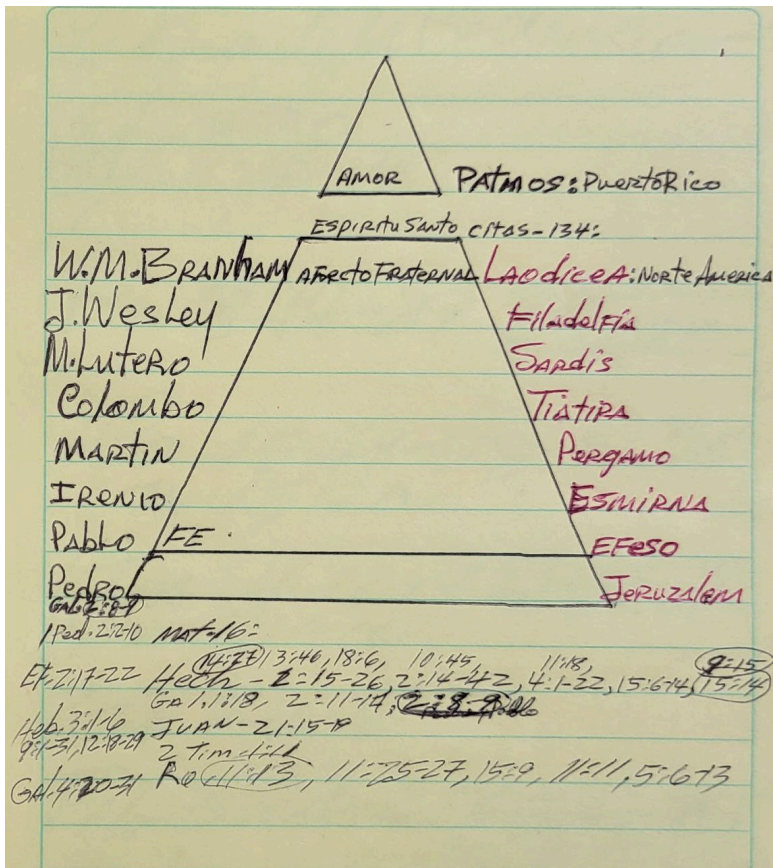 AMOR PATMOS: PuertoRico
Espiritu Santo citas-134:
W.M.BRANham AFecto FRATERNAL LAodiceA: Norte America
J.Wesley Filadelfia
M.Lutero Sardis
Colombo TiATiRA
MARTIN PERGAMO
IRENIO ESMIRNA
Pablo FE. EFeso
Pedro Jeruzalem
GAL.2:8-9
1Ped.2:2-10 MAt-16:
14:27 13:46, 18:6, 10:45, 11:18, 9:15
Ef.2:17-22 Hech-1:15-26, 2:14-42, 4:1-22, 15:6-14, 15:14
GAl.1:18, 2:11-14,
Heb.3:1-6 JUAN-21:15-19
12:18-29 2 Tim
GAl.4:20-31 Ro 11:13, 11:25-27, 15:9, 11:11, 5:6-13